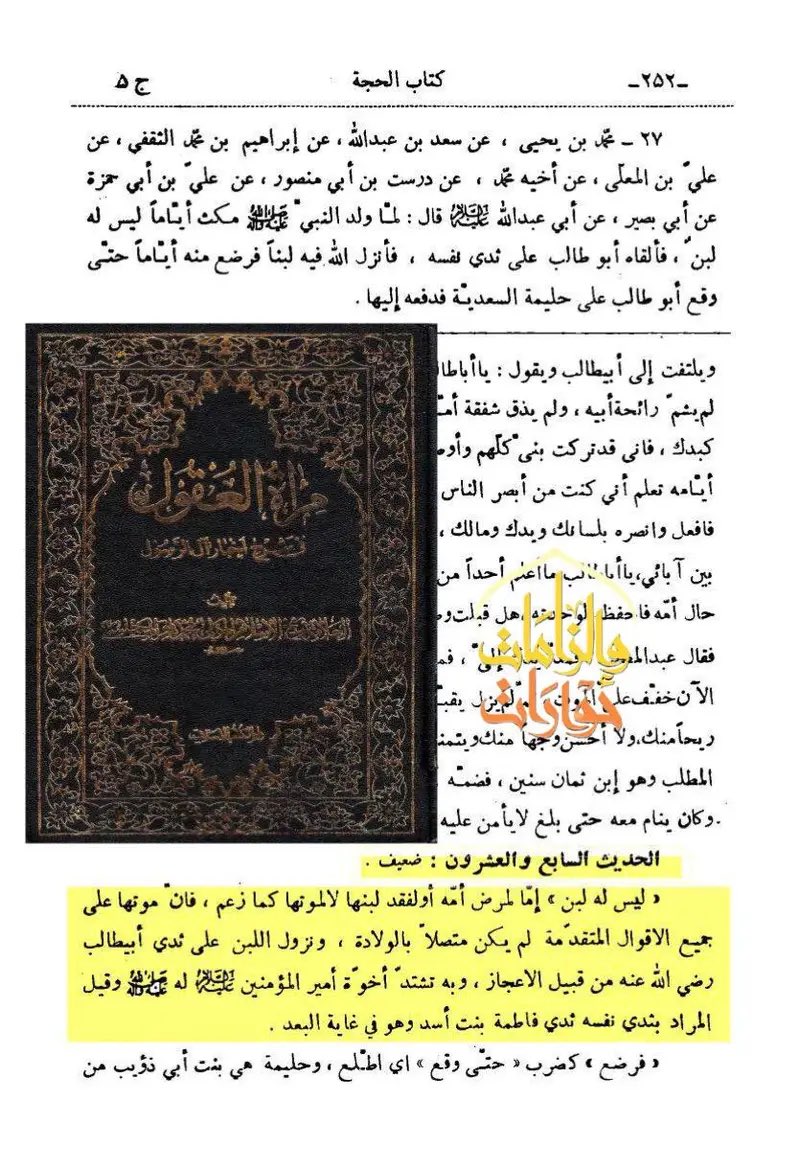 -۲۵۲- كتاب الحجة ج ۵
۲۷ - محمّد بن يحيى ، عن سعد بن عبدالله ، عن إبراهيم بن محمّد الثقفي ، عن
عليّ بن المعلّى ، عن أخيه محمّد ، عن درست بن أبي منصور ، عن عليّ بن أبي حمزة
عن أبي بصير ، عن أبي عبدالله عليه السلام قال : لمّا ولد النبيّ صلى الله عليه وآله مكث أيّاماً ليس له
لبن ، فألقاه أبو طالب على ثدي نفسه ، فأنزل الله فيه لبناً فرضع منه أيّاماً حتّى
وقع أبو طالب على حليمة السعديّة فدفعه إليها .
ويلتفت إلى أبيطالب ويقول : يا أباطالب
لم يشمّ رائحة أبيه ، ولم يذق شفقة
كبدك ، فانى قد تركت بنى كلّهم
أيّامه تعلم أني كنت من أبصر الناس
فافعل وانصره بلسانك ويدك ومالك ،
بين آبائي، يا أباطالب ما اعلم أحداً من
حال أمّه هل قبلت
فقال عبدالمطلب
الآن خفّف على الموت ، ثمّ لم يزل
ريحاً منك، ولا أحسن وجهاً منك ويتمنى
المطلب وهو إبن ثمان سنين ، فضمّه
وكان ينام معه حتى بلغ لا يأمن عليه
مرآة العقول
في شرح أخبار آل الرسول
والزامات
حوارات
الحديث السابع والعشرون : ضعيف .
« ليس له لبن » إمّا لمرض أمّه أولفقد لبنها لالموتها كما زعم ، فانّ موتها على
جميع الاقوال المتقدّمة لم يكن متصلاً بالولادة ، ونزول اللبن على ثدي أبيطالب
رضي الله عنه من قبيل الاعجاز ، وبه تشتدّ أخوّة أمير المؤمنين عليه السلام له صلى الله عليه وآله وقيل
المراد بثدي نفسه ثدي فاطمة بنت أسد وهو في غاية البعد .
« فرضع » كضرب « حتّى وقع » اي اطّلع ، وحليمة هي بنت أبي ذؤيب من